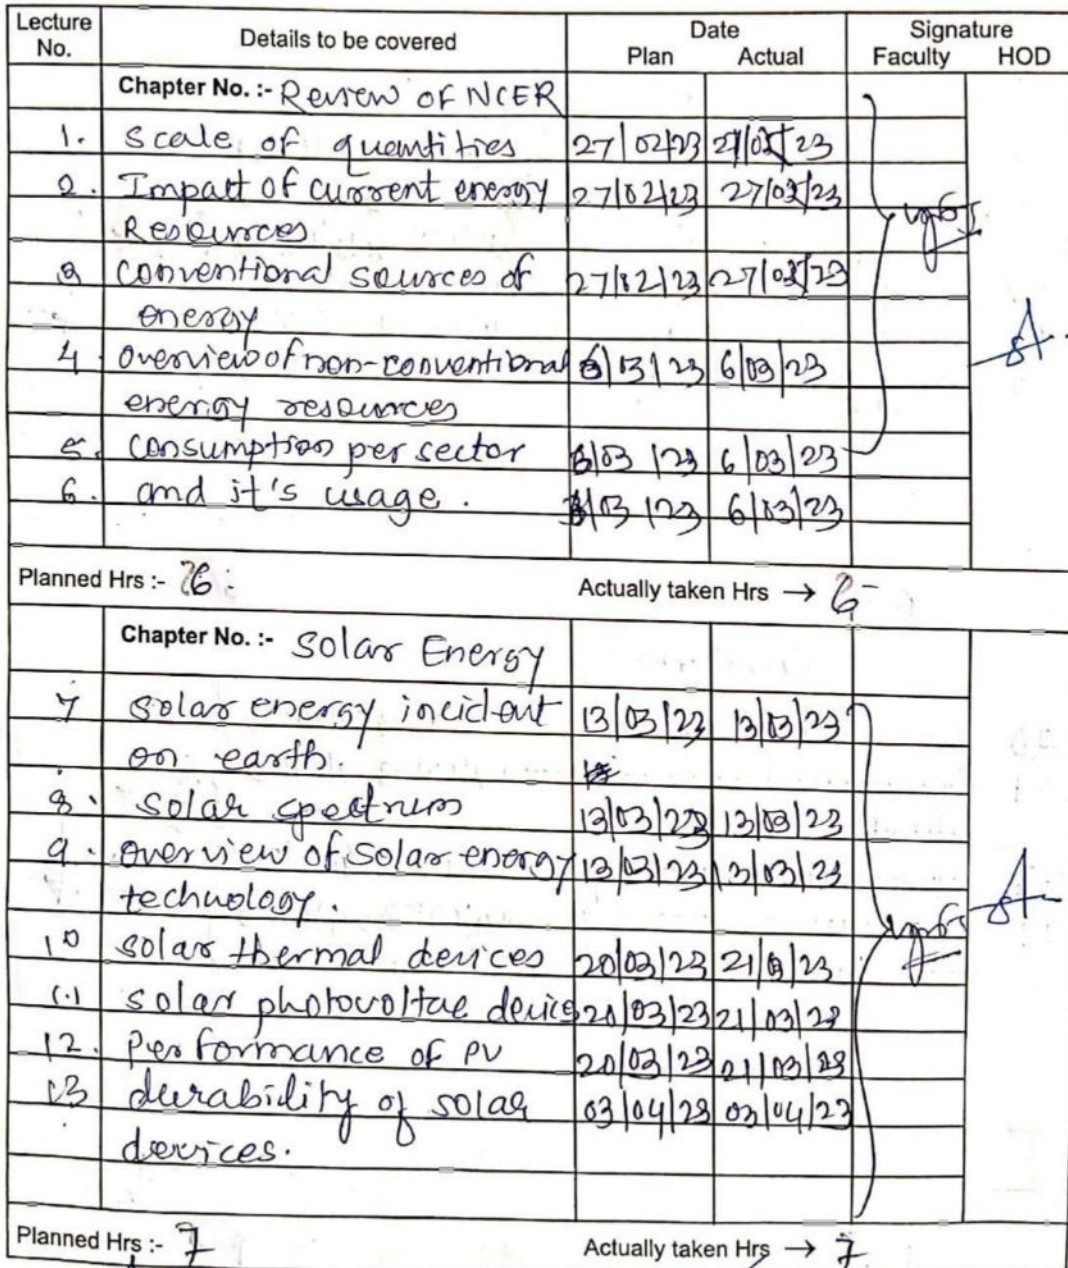 Lecture No. Details to be covered Date Signature
Plan Actual Faculty HOD
Chapter No. :- Review of NCER
1. Scale of quantities 27/02/23 27/02/23
2. Impact of current energy 27/02/23 27/02/23
Resources
3 conventional sources of 27/02/23 27/02/23
energy
4 overview of non-conventional 6/03/23 6/03/23
energy resources
5. consumption per sector 6/03/23 6/03/23
6. and it's usage. 6/03/23 6/03/23
Planned Hrs :- 6 Actually taken Hrs → 6
Chapter No. :- Solar Energy
7 solar energy incident 13/03/23 13/03/23
on earth.
8. solar spectrum 13/03/23 13/03/23
9. overview of solar energy 13/03/23 13/03/23
technology.
10 solar thermal devices 20/03/23 21/03/23
11 solar photovoltae device 20/03/23 21/03/23
12. Performance of PV 20/03/23 21/03/23
13 durability of solar 03/04/23 03/04/23
devices.
Planned Hrs :- 7 Actually taken Hrs → 7